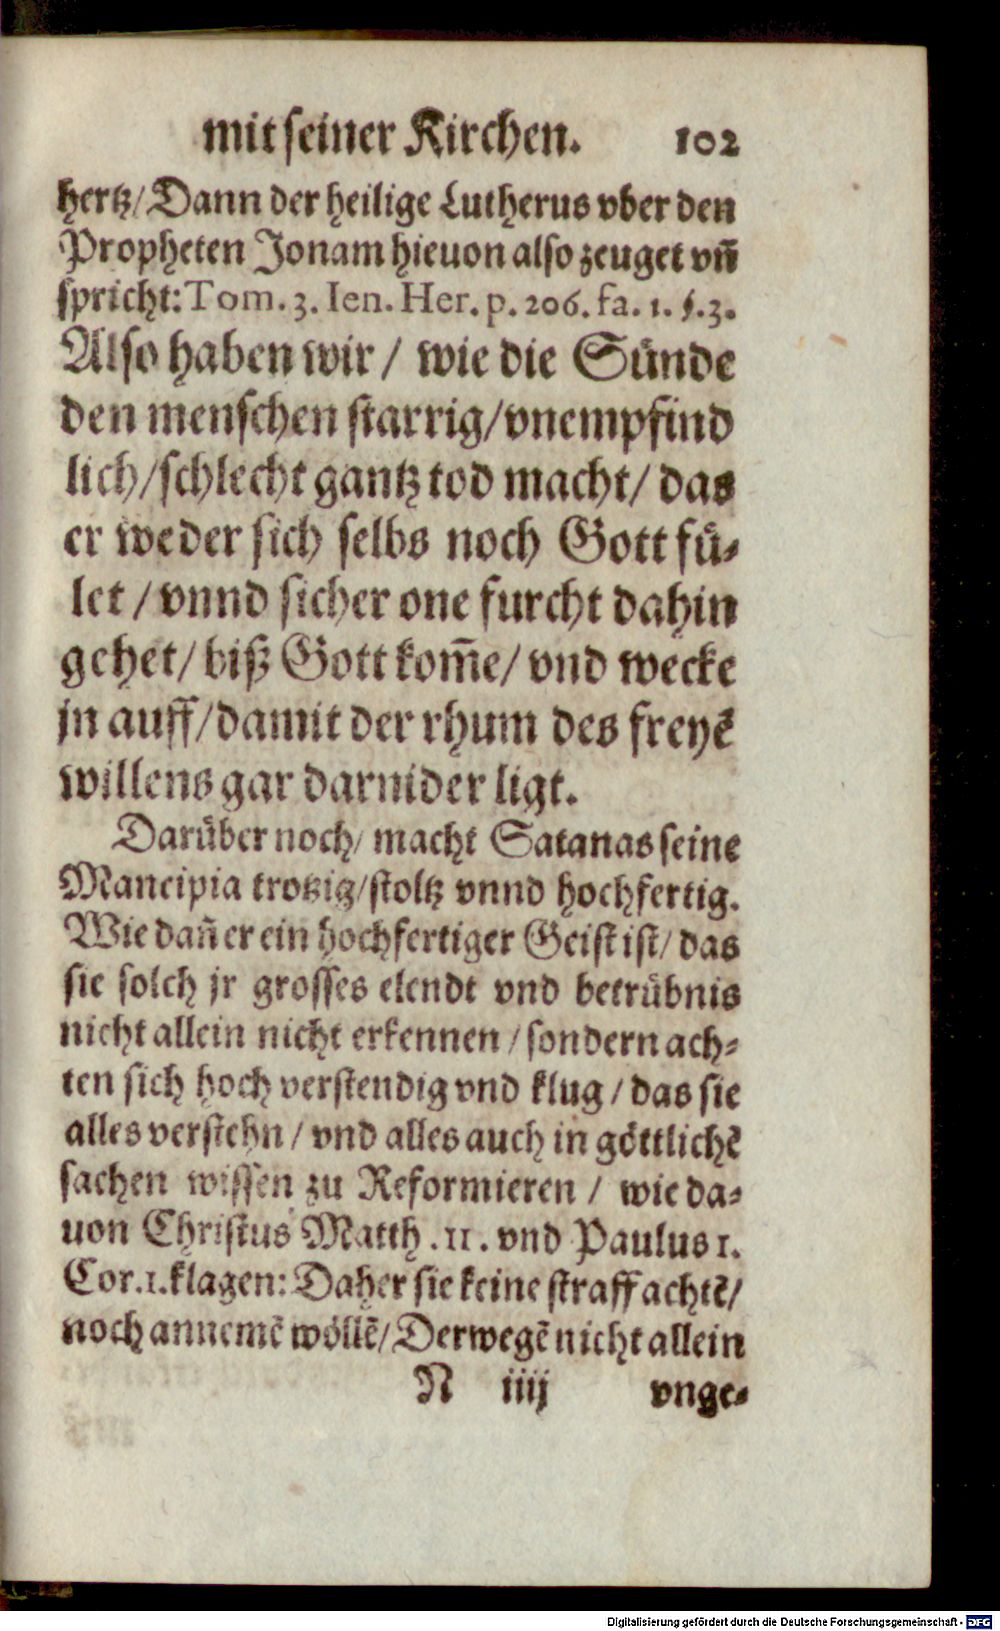 mit seiner Kirchen. 102
hertz/ Dann der heilige Lutherus vber den
Propheten Jonam hieuon also zeuget vñ
spricht: Tom. 3. Ien. Her. p. 206. fa. 1. §. 3.
Also haben wir / wie die Sünde
den menschen starrig/vnempfind
lich/schlecht gantz tod macht/ das
er weder sich selbs noch Gott fü-
let / vnnd sicher one furcht dahin
gehet/ biß Gott kom̃e/ vnd wecke
jn auff/damit der rhum des freyẽ
willens gar darnider ligt.
Darüber noch/ macht Satanas seine
Mancipia trotzig/stoltz vnnd hochfertig.
Wie dañ er ein hochfertiger Geist ist/ das
sie solch jr grosses elendt vnd betrübnis
nicht allein nicht erkennen / sondern ach-
ten sich hoch verstendig vnd klug / das sie
alles verstehn / vnd alles auch in göttlichẽ
sachen wissen zu Reformieren / wie da-
uon Christus Matth. 11. vnd Paulus 1.
Cor. 1. klagen: Daher sie keine straff achtẽ/
noch annemẽ wöllẽ/ Derwegẽ nicht allein
N iiij vnge-
Digitalisierung gefördert durch die Deutsche Forschungsgemeinschaft - DFG